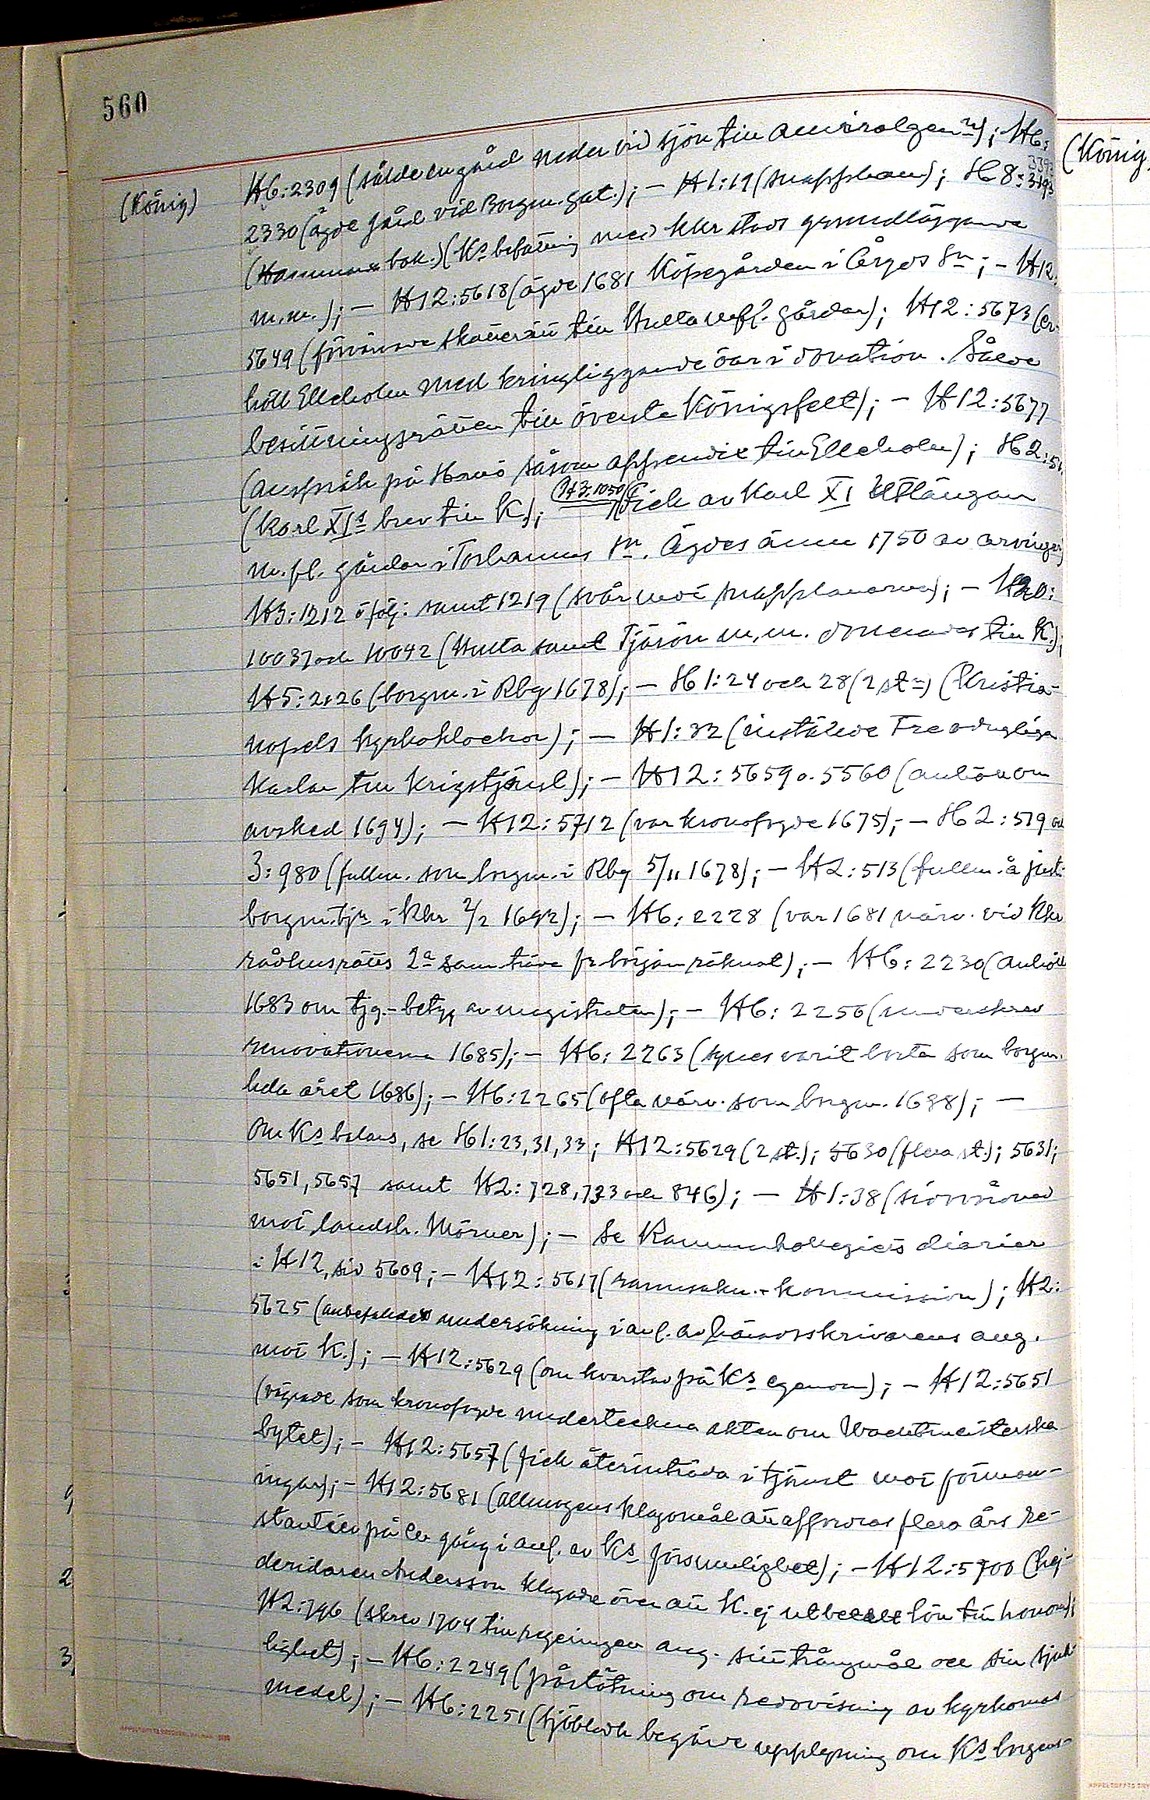 560
(König)
H6:2309 (sålde en gård neder vid sjön till amiralgen.); H6:
2330 (ägde gård vid Borgm. gat.); - H1:19 (snapphan); H8: 3393
bok.) (Ks befattning med Khr stads grundläggande
m.m.); - H12:5618 (ägde 1681 Köpegården i Åryds sn; - H12:
5649 (förvärvade skatterätt till Hulta m.fl. gårdar); H12:5673 (er-
höll Elleholm med kringliggande öar i donation. Sålde
besittningsrätten till överste Königsfelt); - H12:5677
(anspråk på Hanö såsom appendix till Elleholm); H2:
(Karl XIs brev till K.); (H3:1050) (fick av Karl XI Utlängan
m.fl. gårdar i Torhamns sn. Ägdes ännu 1750 av arvingar)
H3:1212 o följ. samt 1219 (svår mot snapphanarna); - H20:
10037 och 10042 (Hulta samt Tjärön m.m. donerades till K.);
H5:2126 (borgm. i Rby 1678); - H1:24 och 28 (2 st.) (Kristia-
nopels kyrkoklockor); - H1:32 (inställde Tre odugliga
karlar till krigstjänst); - H12:5659 o. 5560 (anhöll om
avsked 1694); - H12:5712 (var kronofogde 1675); - H2:519 och
3:980 (fullm. som borgm. i Rby 5/11 1678); - H2:513 (fullm. å justi-
borgm.tjr i Khr 2/2 1692); - H6:2228 (var 1681 närv. vid Khr
rådhusrätts 2a samträde fr. början räknat); - H6:2230 (anhöll
1683 om tjg.-betyg av magistraten); - H6:2256 (underskrev
renovationerna 1685); - H6:2263 (synes varit borta som borgm.
hela året 1686); - H6:2265 (ofta närv. som borgm. 1688); -
Om Ks balans, se H1:23,31,33; H12:5629 (2 st.); 5630 (flera st.); 5631;
5651, 5657 samt H2:728,733 och 846); - H1:38 (
mot landsh. Mörner); - Se Kammarkollegiets diarier
i H12, sid 5609; - H12:5617 (rannsakn.-kommission); H2:
5625 (anbefalldes undersökning i anl. av häradsskrivarens ang.
mot K.); - H12:5629 (om kvarstad på Ks egendom); - H12:5651
(vägrade som kronofogde underteckna akten om Wachtmeisterska
bytet); - H12:5657 (fick återinträda i tjänst mot förman-
ingar); - H12:5681 (Allmogens klagomål att affordras flera års re-
stantier på en gång i anl. av Ks försumlighet); - H12:5700 (hej-
deridaren Andersson klagade över att K. ej utbetalt lön till honom);
H2:796 (skrev 1704 till regeringen ang. sitt trångmål och sin sjuk-
lighet); - H6:2249 (påstötning om redovisning av kyrkornas
medel); - H6:2251 (Sjöbladh begärde upplysning om Ks borgens-
(König
2
3